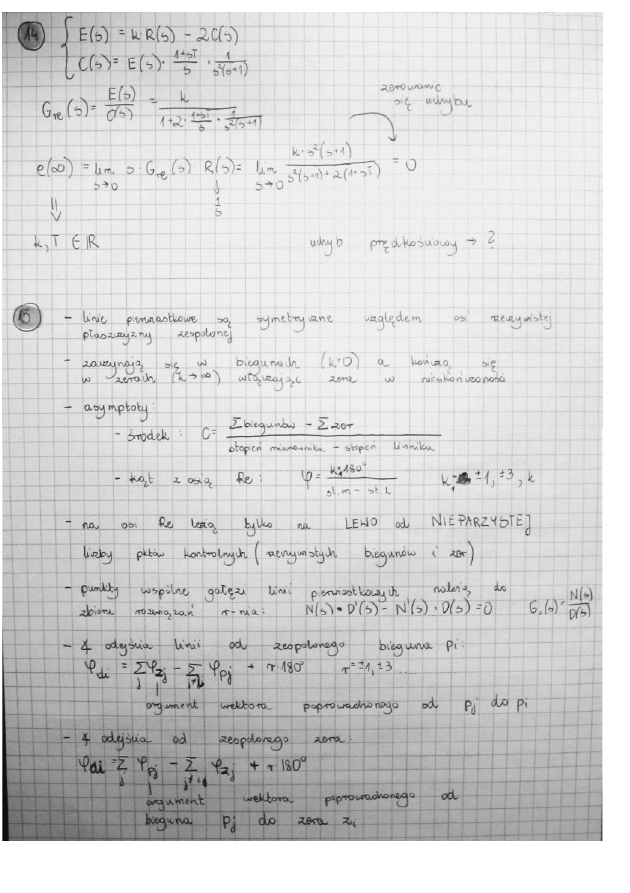 14 { E(s) = k·R(s) - 2C(s)
C(s) = E(s)· (1+sT)/s · 1/(s²(s+1))
G_re(s) = E(s)/C(s) = k / (1+2· (1+sT)/s · 1/(s²(s+1)))
zerowanie
się uchybu
e(∞) = lim_{s→0} s·G_re(s) R(s) = lim_{s→0} k·s²(s+1) / (s²(s+1)+2(1+sT)) = 0
⇓ ↓
1/s
k, T ∈ ℝ uchyb prędkościowy → ?
15 - linie pierwiastkowe są symetryczne względem osi rzeczywistej
płaszczyzny zespolonej
- zaczynają się w biegunach (k=0) a kończą się
w zerach (k→∞) włączając zera w nieskończoność
- asymptoty:
- środek : C = (Σbiegunów - Σzer) / (stopień mianownika - stopień licznika)
- kąt z osią Re : φ = k₁·180° / (st.m - st.l) k₁ = ±1, ±3, k
- na osi Re leżą tylko na LEWO od NIEPARZYSTEJ
liczby pktów kontrolnych (rzeczywistych biegunów i zer)
- punkty wspólne gałęzi linii pierwiastkowych należą do
zbioru rozwiązań r-nia: N(s)·D'(s) - N'(s)·D(s) = 0 G_o(s) = N(s)/D(s)
- ∡ odejścia linii od zespolonego bieguna pi:
φ_di = Σ_j φ_zj - Σ_{j≠i} φ_pj + r·180° r = ±1, ±3 ....
argument wektora poprowadzonego od pj do pi
- ∡ odejścia od zespolonego zera:
φ_di = Σ_j φ_pj - Σ_{j≠i} φ_zj + r·180°
argument wektora poprowadzonego od
bieguna pj do zera zi